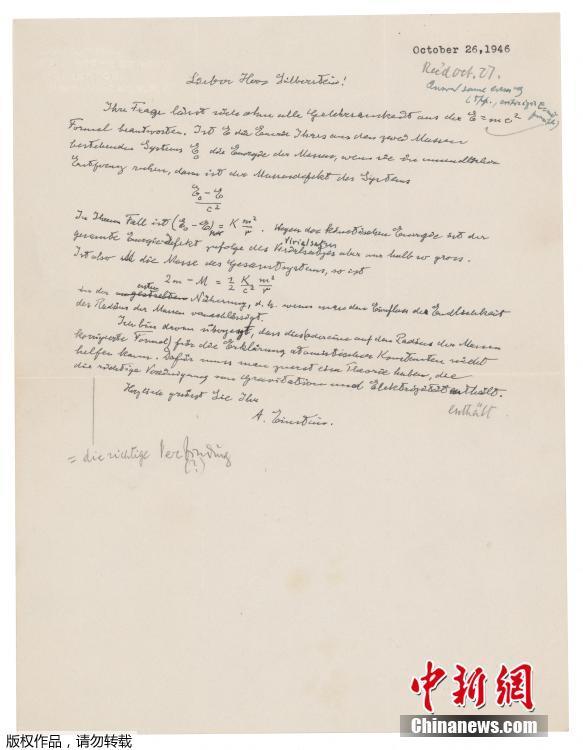 October 26, 1946
Lieber Herr Silberstein!
Ihre Frage lässt sich ohne alle Gelehrsamkeit aus der E = mc²
Formel beantworten. Ist E die Energie Ihres aus den zwei Massen
bestehenden Systems E₀ die Energie der Massen, wenn sie in unendlicher
Entfernung ruhen, dann ist der Massendefekt des Systems
E₀ − E
c²
In Ihrem Fall ist (E₀ − E) = K m²/r . Wegen der kinetischen Energie ist der
Virialsatzes
gesamte Energiedefekt zufolge des aber nur halb so gross.
Ist also M die Masse des Gesamtsystems, so ist
2m − M = 1/2 K/c² m²/r
in der ersten Näherung, d. h. wenn man den Einfluss der Endlichkeit
des Radius der Massen vernachlässigt.
Ich bin davon überzeugt, dass diese auf den Radius der Massen
korrigierte Formel für die Erklärung atomistischer Konstanten nicht
helfen kann. Dafür muss man zuerst eine Theorie haben, die
die richtige Vereinigung von Gravitation und Elektrizität enthält.
enthält
Herzlich grüsst Sie Ihr
A. Einstein.
= die richtige Verbindung
(?)
中新网
Chinanews.com
版权作品，请勿转载